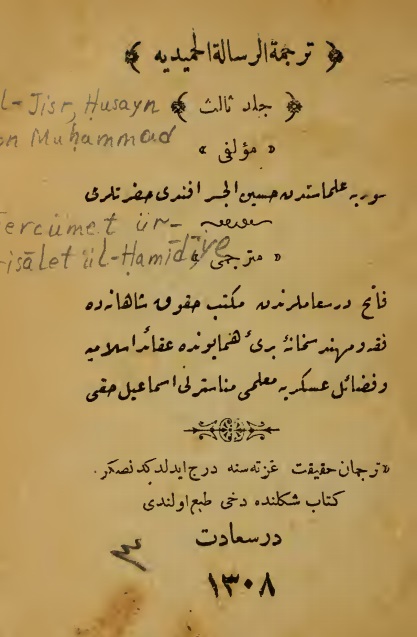 ترجمة الرسالة الحميديه
جلد ثالث
l-Jisr, Ḥusayn
n Muḥammad
« مؤلفی »
سوریه علماسندن حسین الجسر افندی حضرتلری
ercümet ür-
isālet ül-Ḥamīdīye
« مترجمی »
فاتح درسعاملرندن مکتب حقوق شاهانه ده
فقه و مهندسخانهٔ بریٔ همایونده عقائد اسلامیه
و فضائل عسکریه معلمی مناسترلی اسماعیل حقی
« ترجمان حقیقت غزته سنه درج ایدلدکدنصکره
کتاب شکلنده دخی طبع اولندی
درسعادت
٣
١٣٠٨